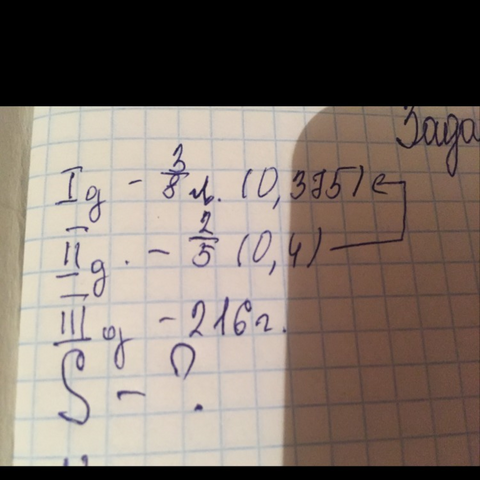 Зада
I д - 3/8 м. (0,375)
II д. - 2/5 (0,4)
III д - 216 г.
S - ?